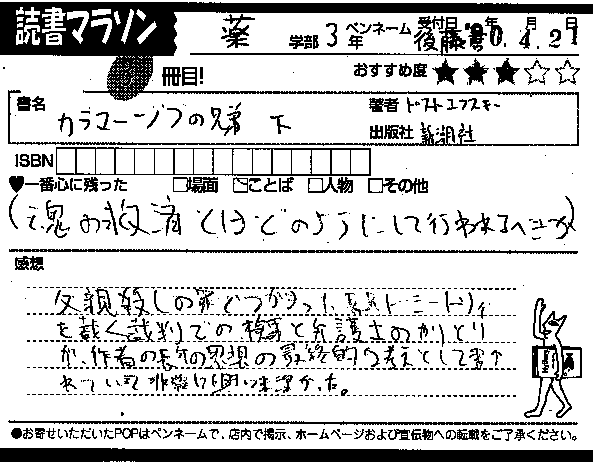 読書マラソン 薬 学部 3年 ペンネーム 後藤 受付日 年 月 日 0.4.21
冊目! おすすめ度 ★★★☆☆
書名 カラマーゾフの兄弟 下 著者 ドストエフスキー
出版社 新潮社
ISBN
♥一番心に残った □場面 ☑ことば □人物 □その他
(魂の救済とはどのようにして行われるべきか)
感想
父親殺しの罪でつかまった、長兄ドミートリィ
を裁く裁判での検事と弁護士のやりとり
が、作者の長年の思想の最終的な考えとして書か
れていて非常に興味深かった。
●お寄せいただいたPOPはペンネームで、店内で掲示、ホームページおよび宣伝物への転載をご了承ください。